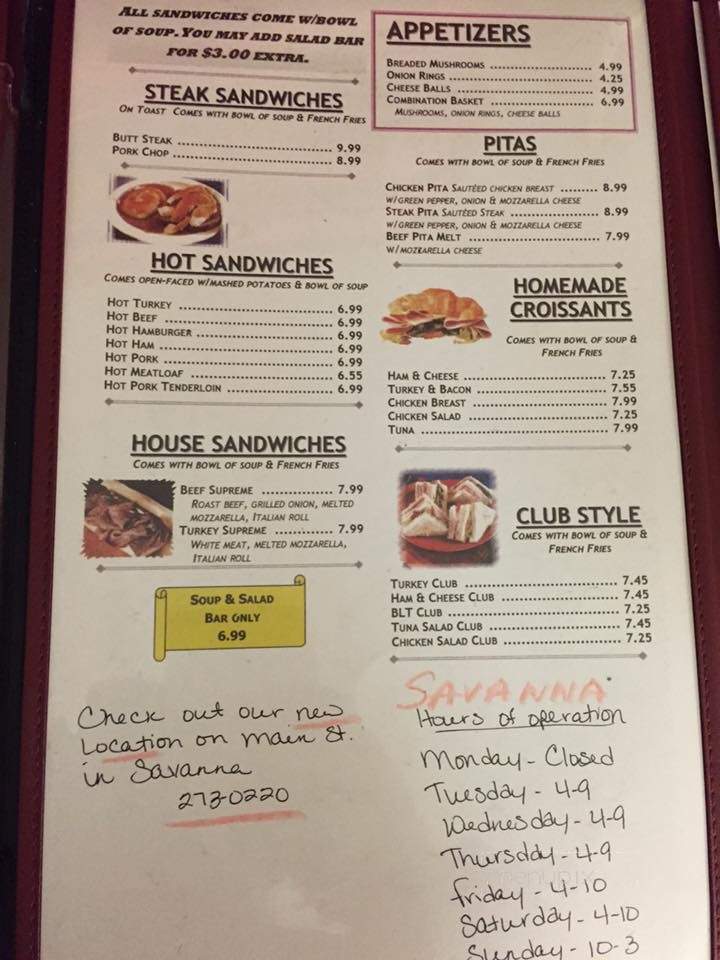 ALL SANDWICHES COME W/BOWL
OF SOUP. YOU MAY ADD SALAD BAR
FOR $3.00 EXTRA.
STEAK SANDWICHES
ON TOAST COMES WITH BOWL OF SOUP & FRENCH FRIES
BUTT STEAK 9.99
PORK CHOP 8.99
HOT SANDWICHES
COMES OPEN-FACED W/MASHED POTATOES & BOWL OF SOUP
HOT TURKEY 6.99
HOT BEEF 6.99
HOT HAMBURGER 6.99
HOT HAM 6.99
HOT PORK 6.99
HOT MEATLOAF 6.55
HOT PORK TENDERLOIN 6.99
HOUSE SANDWICHES
COMES WITH BOWL OF SOUP & FRENCH FRIES
BEEF SUPREME 7.99
ROAST BEEF, GRILLED ONION, MELTED
MOZZARELLA, ITALIAN ROLL
TURKEY SUPREME 7.99
WHITE MEAT, MELTED MOZZARELLA,
ITALIAN ROLL
SOUP & SALAD
BAR ONLY
6.99
Check out our new
Location on main St.
in Savanna
273-0220
APPETIZERS
BREADED MUSHROOMS 4.99
ONION RINGS 4.25
CHEESE BALLS 4.99
COMBINATION BASKET 6.99
MUSHROOMS, ONION RINGS, CHEESE BALLS
PITAS
COMES WITH BOWL OF SOUP & FRENCH FRIES
CHICKEN PITA SAUTÉED CHICKEN BREAST 8.99
W/GREEN PEPPER, ONION & MOZZARELLA CHEESE
STEAK PITA SAUTÉED STEAK 8.99
W/GREEN PEPPER, ONION & MOZZARELLA CHEESE
BEEF PITA MELT 7.99
W/MOZZARELLA CHEESE
HOMEMADE
CROISSANTS
COMES WITH BOWL OF SOUP &
FRENCH FRIES
HAM & CHEESE 7.25
TURKEY & BACON 7.55
CHICKEN BREAST 7.99
CHICKEN SALAD 7.25
TUNA 7.99
CLUB STYLE
COMES WITH BOWL OF SOUP &
FRENCH FRIES
TURKEY CLUB 7.45
HAM & CHEESE CLUB 7.45
BLT CLUB 7.25
TUNA SALAD CLUB 7.45
CHICKEN SALAD CLUB 7.25
SAVANNA
Hours of operation
Monday - Closed
Tuesday - 4-9
Wednesday - 4-9
Thursday - 4-9
friday - 4-10
Saturday - 4-10
Sunday - 10-3